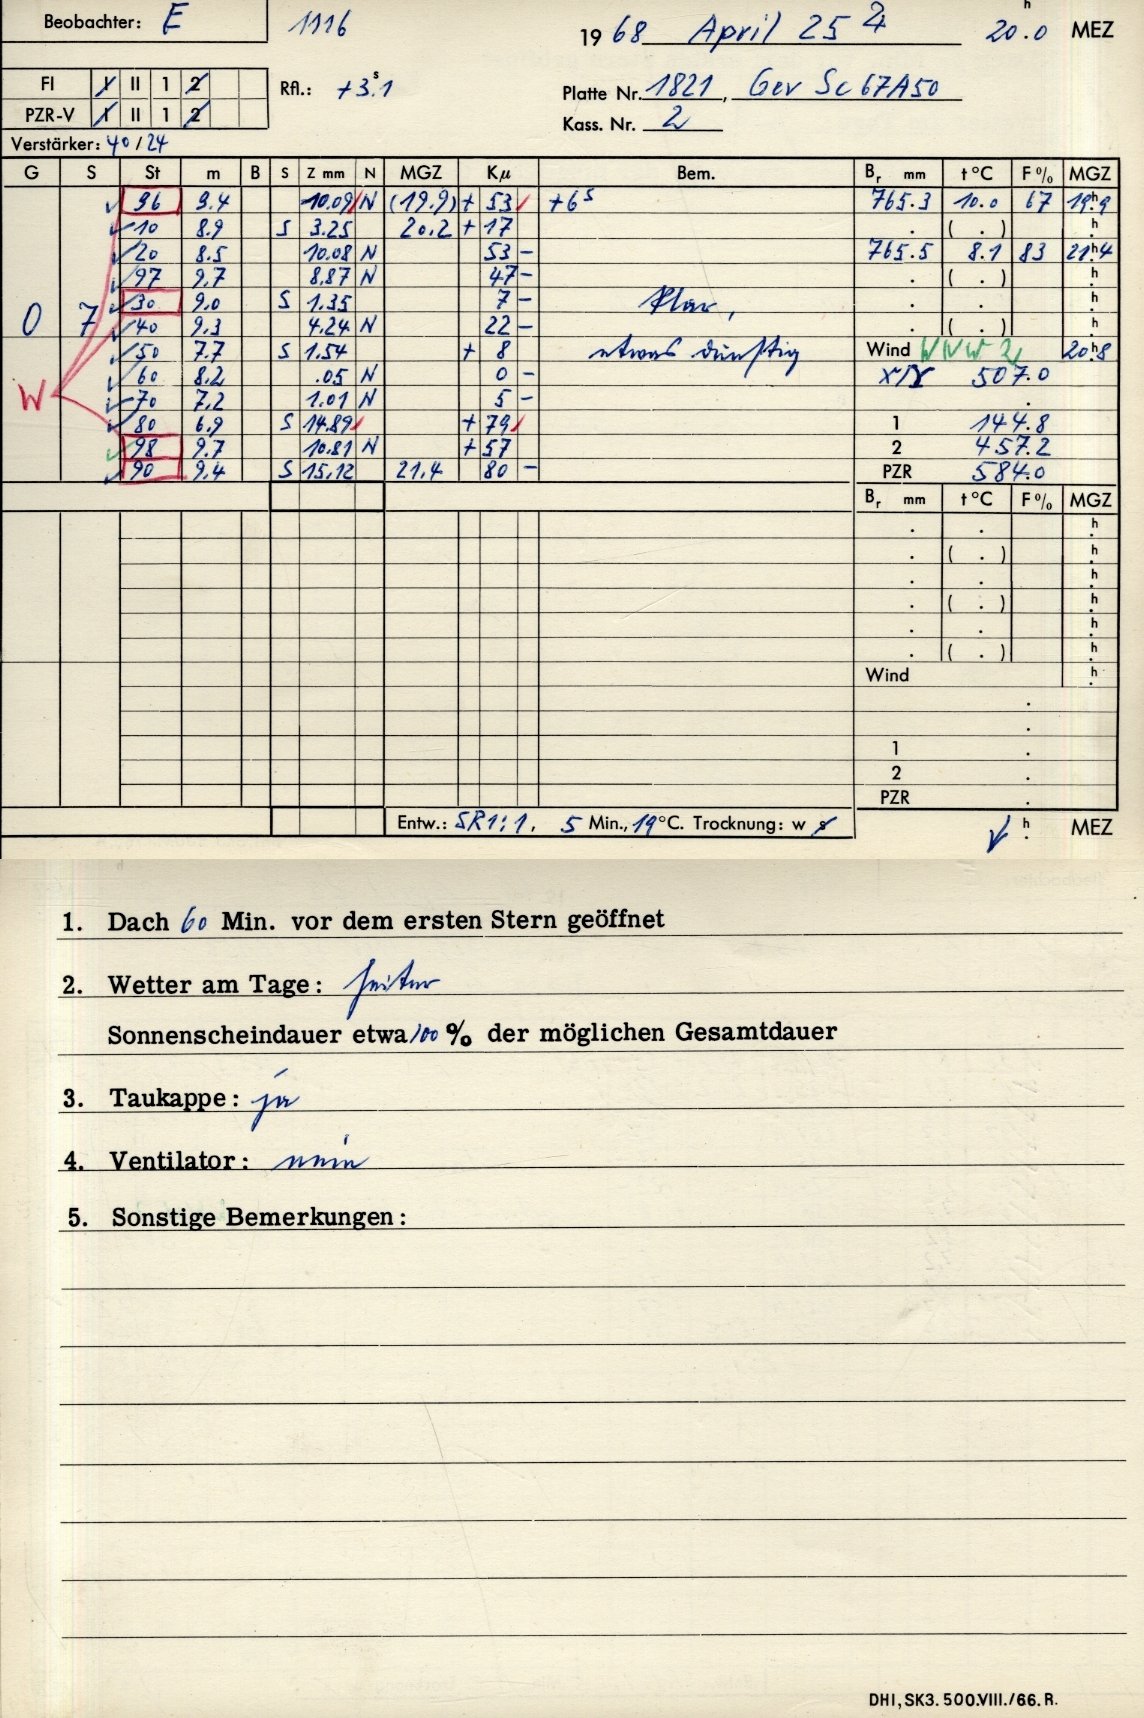 Beobachter: E 1116 1968 April 25 2 20.0 h MEZ
FI I II 1 2 Rfl.: +3.s1 Platte Nr. 1821, Gev Sc 67A50
PZR-V I II 1 2 Kass. Nr. 2
Verstärker: 40/24
G S St m B S Z mm N MGZ Kµ Bem. Br mm t°C F% MGZ
96 9.4 10.09 N (19.9) + 53 +6s 765.3 10.0 67 19h9
10 8.9 S 3.25 20.2 + 17 . ( . ) h.
20 8.5 10.08 N 53 - 765.5 8.1 83 21h4
97 9.7 8.87 N 47 - . ( . ) h.
0 7 30 9.0 S 1.35 7 - Klar, . . h.
40 9.3 4.24 N 22 - . ( . ) h.
50 7.7 S 1.54 + 8 etwas dunstig Wind WNW 2 20h8
60 8.2 .05 N 0 - X/Y 507.0
W 70 7.2 1.01 N 5 - .
80 6.9 S 14.89 + 79 1 144.8
98 9.7 10.81 N + 57 2 457.2
90 9.4 S 15.12 21.4 80 - PZR 584.0
Br mm t°C F% MGZ
. . h.
. ( . ) h.
. . h.
. ( . ) h.
. . h.
. ( . ) h.
Wind h.
.
.
1 .
2 .
PZR .
Entw.: SR1:1, 5 Min., 19°C. Trocknung: w s h. MEZ
1. Dach 60 Min. vor dem ersten Stern geöffnet
2. Wetter am Tage: heiter
Sonnenscheindauer etwa 100 % der möglichen Gesamtdauer
3. Taukappe: ja
4. Ventilator: nein
5. Sonstige Bemerkungen:
DHI, SK3. 500.VIII./66. R.